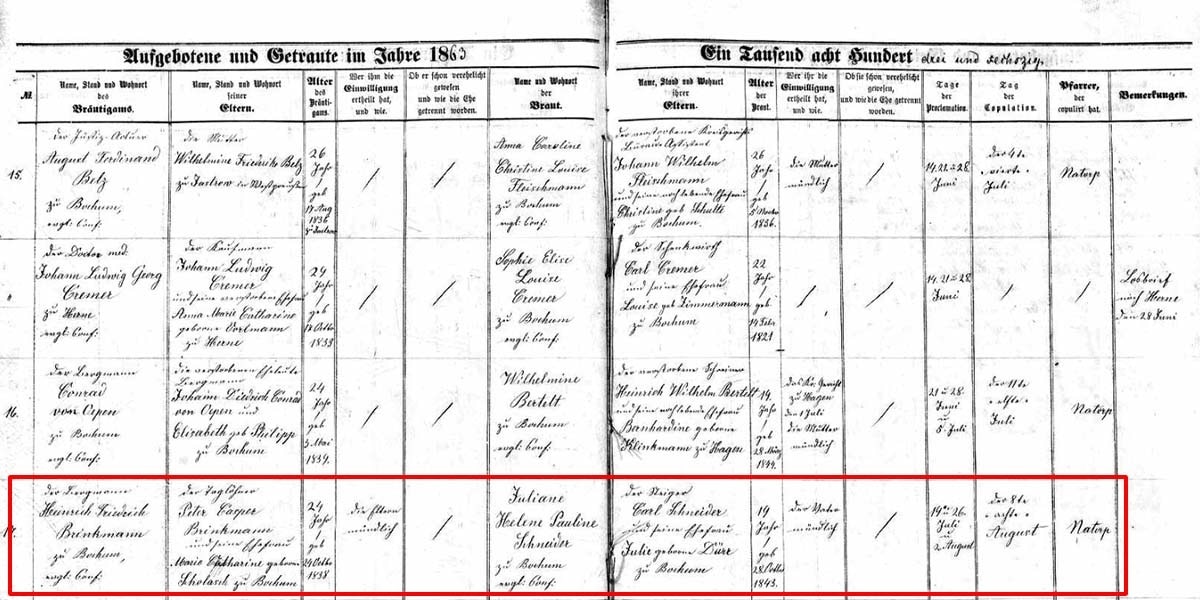 Aufgebotene und Getraute im Jahre 1863
Ein Tausend acht Hundert drei und sechszig.
№
Name, Stand und Wohnort
des
Bräutigams.
Name, Stand und Wohnort
seiner
Eltern.
Alter
des
Bräuti-
gams.
Wer ihm die
Einwilligung
ertheilt hat,
und wie.
Ob er schon verehelicht
gewesen
und wie die Ehe
getrennt worden.
Name und Wohnort
der
Braut.
Name, Stand und Wohnort
ihrer
Eltern.
Alter
der
Braut.
Wer ihr die
Einwilligung
ertheilt hat,
und wie.
Ob sie schon verehelicht
gewesen,
und wie die Ehe getrennt
worden.
Tage
der
Proclamation.
Tag
der
Copulation.
Pfarrer,
der
copulirt hat.
Bemerkungen.
15.
der Justiz-Actuar
August Ferdinand
Betz
zu Bochum,
evgl: Conf:
die Mutter
Wilhelmine Friedrike Betz
zu Jastrow in Westpreußen
26
Jahr
/
geb
17 Aug
1836
zu Jastrow
/
/
Anna Caroline
Christine Louise
Fleischmann
zu Bochum
evgl: Conf:
der verstorbene Kreisgerichts
Bureau-Assistent
Johann Wilhelm
Fleischmann
und seine nachlebende Ehefrau
Christine geb Schulte
zu Bochum.
26
Jahr
/
geb
5 Novbr
1836.
die Mutter
mündlich
/
14. 21. u 28.
Juni
der 4te
-vierte-
Juli
Natorp
"
der Doctor med:
Johann Ludwig Georg
Cremer
zu Herne
evgl: Conf:
der Kaufmann
Johann Ludwig
Cremer
und seine verstorbene Ehefrau
Anna Marie Catharine
geborene Cortmann
zu Herne
29
Jahr
/
geb
17 Octbr
1833
/
/
Sophie Elise
Louise
Cremer
zu Bochum
evgl: Conf:
der Schenkwirth
Carl Cremer
und seine Ehefrau
Louise geb Zimmermann
zu Bochum
22
Jahr
/
geb
14 Febr
/
/
14. 21 u 28.
Juni
/
/
Losbrief
nach Herne
den 28 Juni
16.
der Bergmann
Conrad
von Orpen
zu Bochum
evgl: Conf:
die verstorbenen Eheleute
Bergmann
Johann Diedrich Conrad
von Orpen und
Elisabeth geb Philipp
zu Bochum
24
Jahr
/
geb
3 Mai
1839.
/
/
Wilhelmine
Bertelt
zu Bochum
evgl: Conf:
der verstorbene Schreiner
Heinrich Wilhelm Bertelt
und seine nachlebende Ehefrau
Bernhardine geborene
Klinkmann zu Hagen
19.
Jahr
/
geb
28 März
1844.
das Kr. Gericht
zu Hagen
den 1 Juli
die Mutter
mündlich
/
21 u 28.
Juni
u
5. Juli
der 11te
-elfte-
Juli
Natorp
17.
der Bergmann
Heinrich Friedrich
Brinkmann
zu Bochum,
evgl: Conf:
der Taglöhner
Peter Casper
Brinkmann
und seine Ehefrau
Marie Catharine geborene
Scholasch zu Bochum
24
Jahr
/
geb
24 Octbr
1838
die Eltern
mündlich
/
Juliane
Helene Pauline
Schneider
zu Bochum
evgl: Conf:
der Steiger
Carl Schneider
und seine Ehefrau
Julie geborene Dürr
zu Bochum
19
Jahr
/
geb
28 Octbr
1843.
der Vater
mündlich
/
19 u 26.
Juli
u
2. August
der 8te
-achte-
August
Natorp